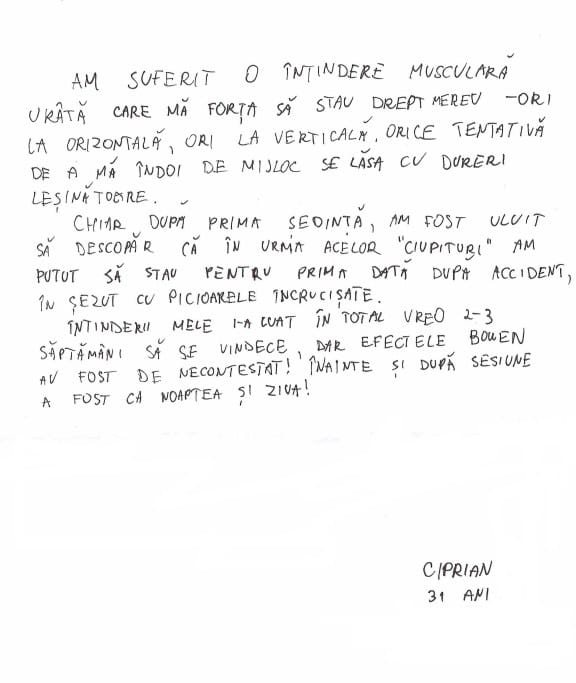 AM SUFERIT O ÎNȚINDERE MUSCULARĂ
URÂTĂ CARE MĂ FORȚA SĂ STAU DREPT MEREU - ORI
LA ORIZONTALĂ, ORI LA VERTICALĂ. ORICE TENTATIVĂ
DE A MĂ ÎNDOI DE MIJLOC SE LĂSA CU DURERI
LEȘINĂTOARE.
CHIAR DUPĂ PRIMA SEDINȚĂ, AM FOST ULUIT
SĂ DESCOPĂR CĂ ÎN URMA ACELOR "CIUPITURI" AM
PUTUT SĂ STAU PENTRU PRIMA DATĂ DUPĂ ACCIDENT,
ÎN ȘEZUT CU PICIOARELE ÎNCRUCIȘATE.
ÎNTINDERII MELE I-A LUAT ÎN TOTAL VREO 2-3
SĂPTĂMÂNI SĂ SE VINDECE, DAR EFECTELE BOWEN
AU FOST DE NECONTESTAT! ÎNAINTE ȘI DUPĂ SESIUNE
A FOST CA NOAPTEA ȘI ZIUA!
CIPRIAN
31 ANI